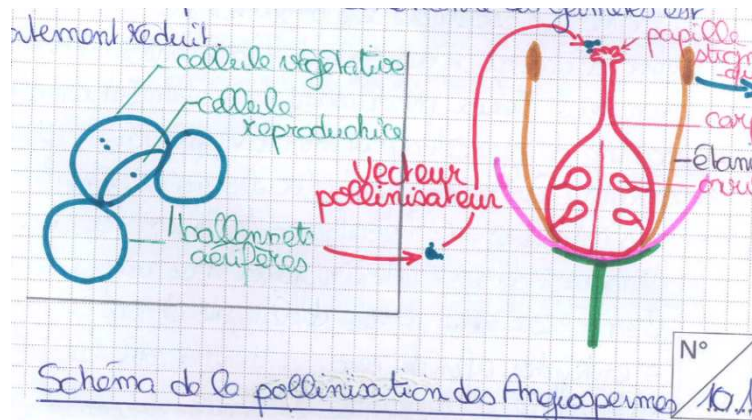 gamètes est
réduit.
cellule végétative
cellule
reproductrice
ballonnets
aérifères
vecteur
pollinisateur
papille
Schéma de la pollinisation des Angiospermes
N°